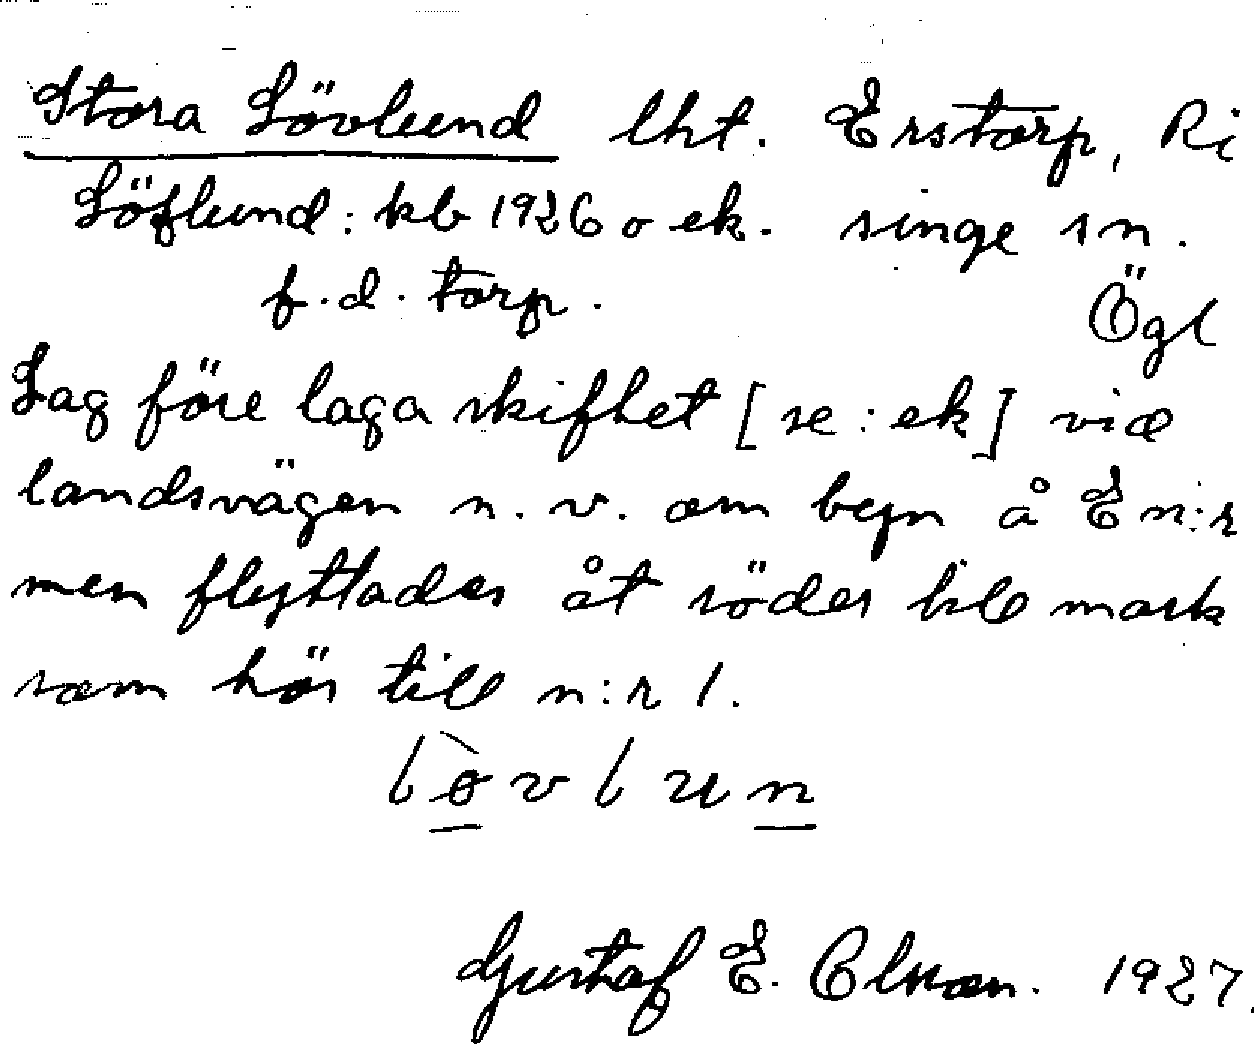 Stora Lövlund lht. Erstorp, Ri
Löflund: kb 1926 o ek. singe sn.
f.d. torp. Ögl
Låg före laga skiftet [se: ek] vid
landsvägen n.v. om byn å E n:r
men flyttades åt söder till mark
som hör till n:r 1.
Gustaf E. Olsson. 1927.